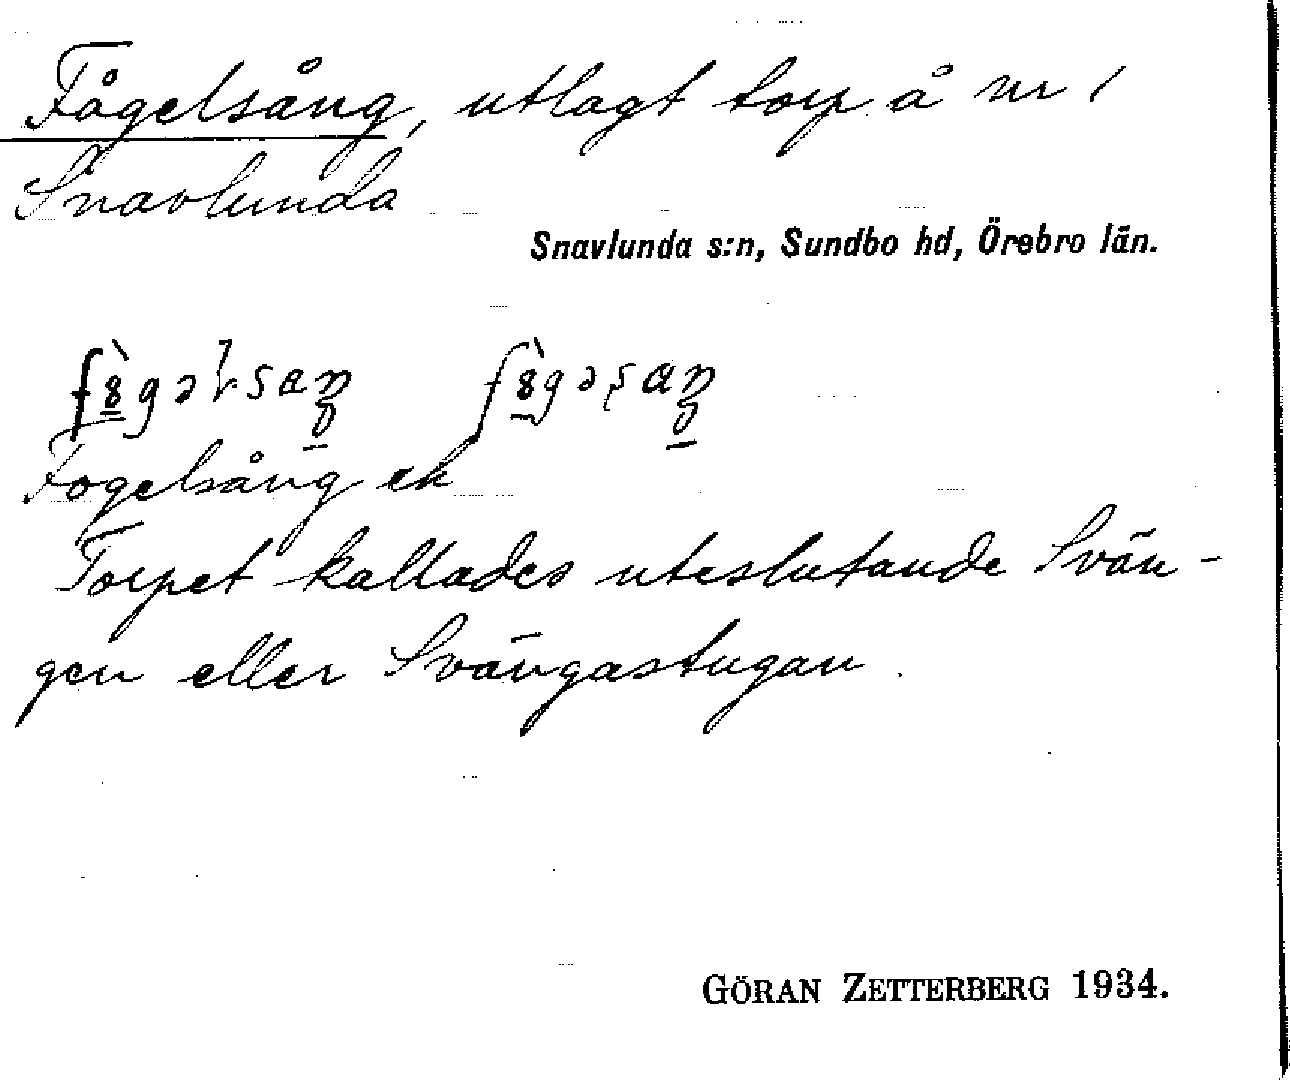 Fågelsång, utlagt torp å nr 1
Snavlunda
Snavlunda s:n, Sundbo hd, Örebro län.
Fogelsång ek
Torpet kallades uteslutande Svän-
gen eller Svängastugan.
GÖRAN ZETTERBERG 1934.